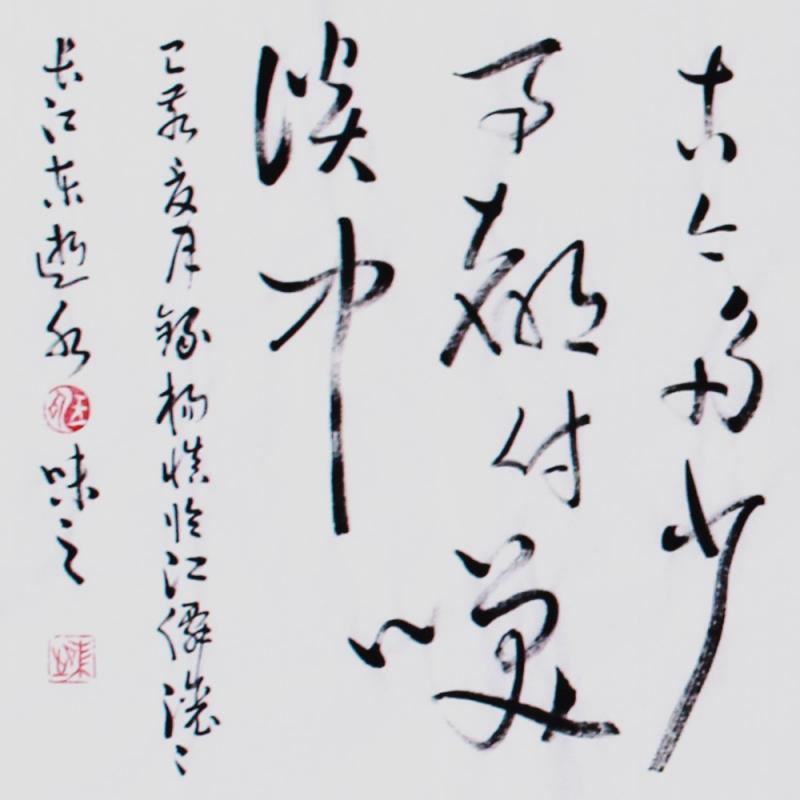 古今多少
事都付笑
谈中
己亥夏月录杨慎临江仙滚滚
长江东逝水
味之